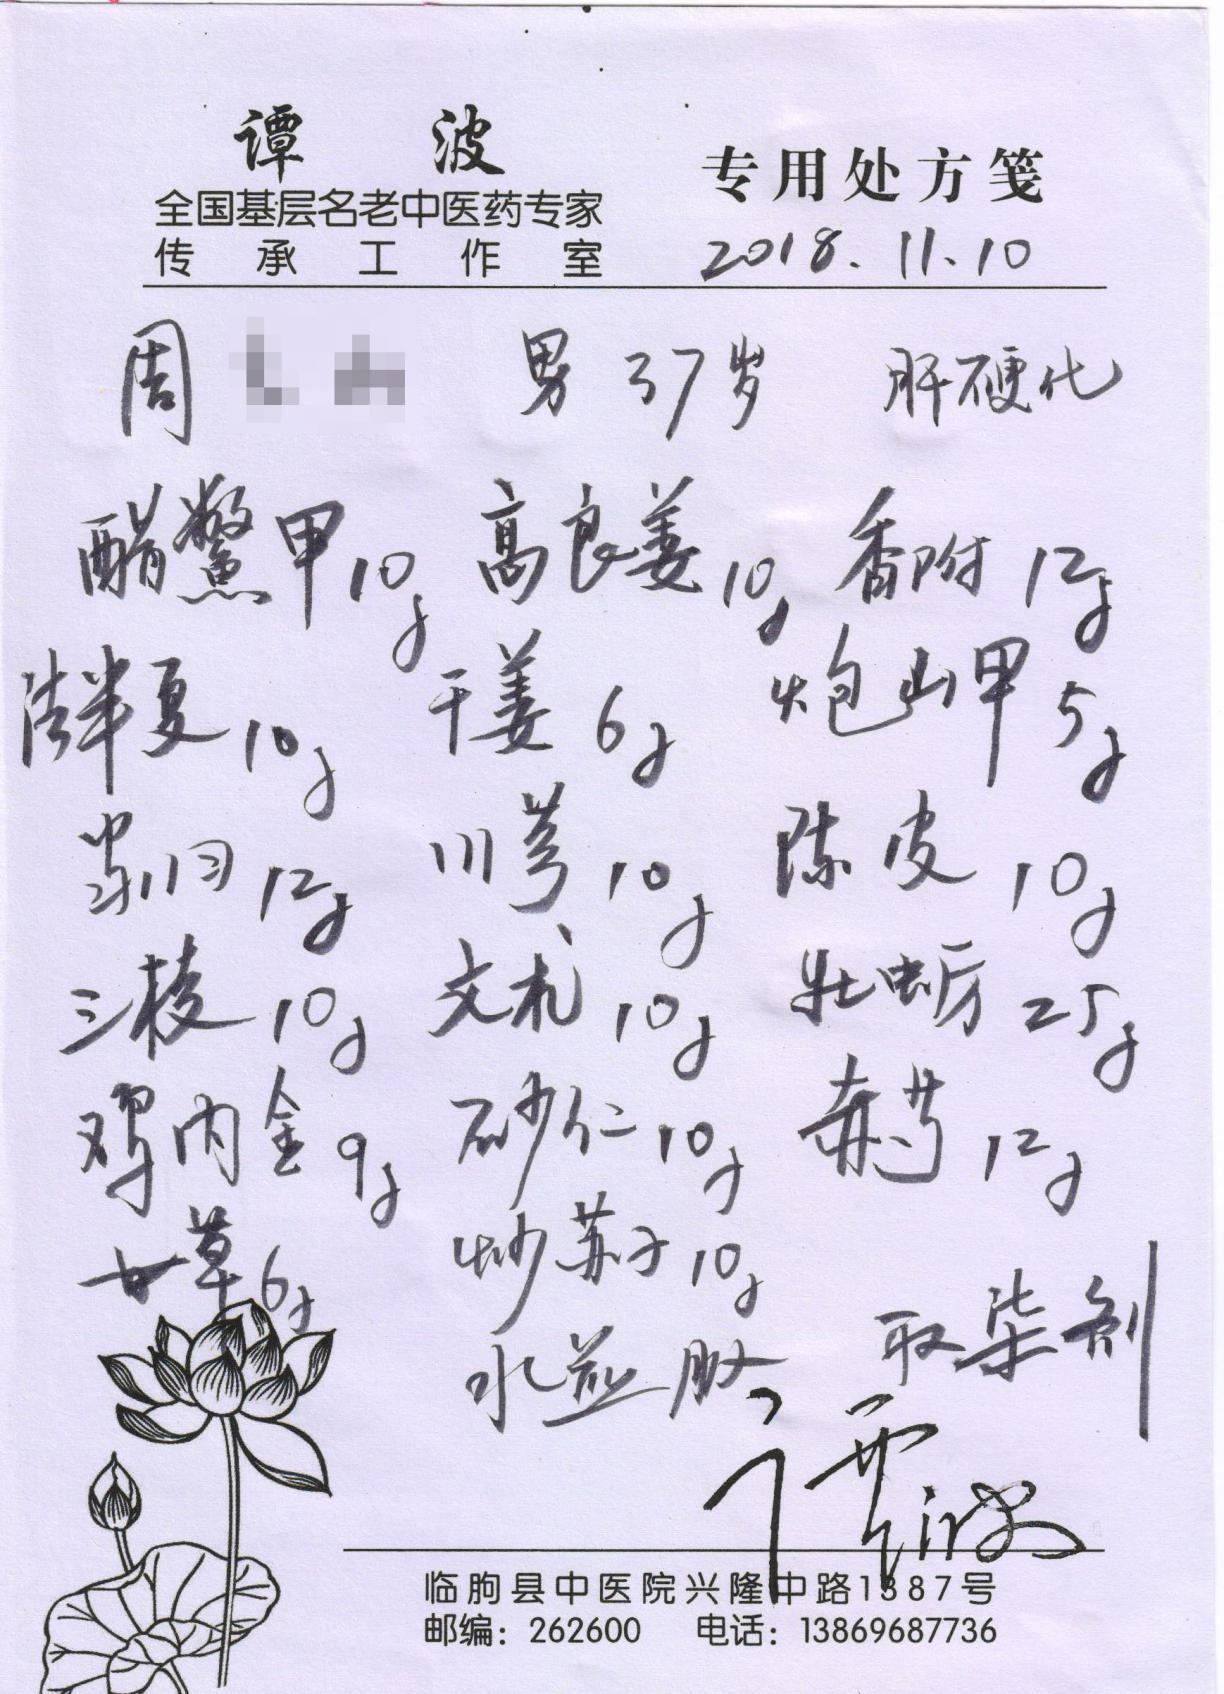 谭 波
全国基层名老中医药专家
传承工作室
专用处方笺
2018.11.10
周 男 37岁 肝硬化
醋鳖甲10g 高良姜10g 香附12g
清半夏10g 干姜6g 炮山甲5g
当归12g 川芎10g 陈皮10g
三棱10g 文术10g 牡蛎25g
鸡内金9g 砂仁10g 赤芍12g
甘草6g 炒苏子10g
水煎服 取柒剂
谭波
临朐县中医院兴隆中路1387号
邮编：262600 电话：13869687736